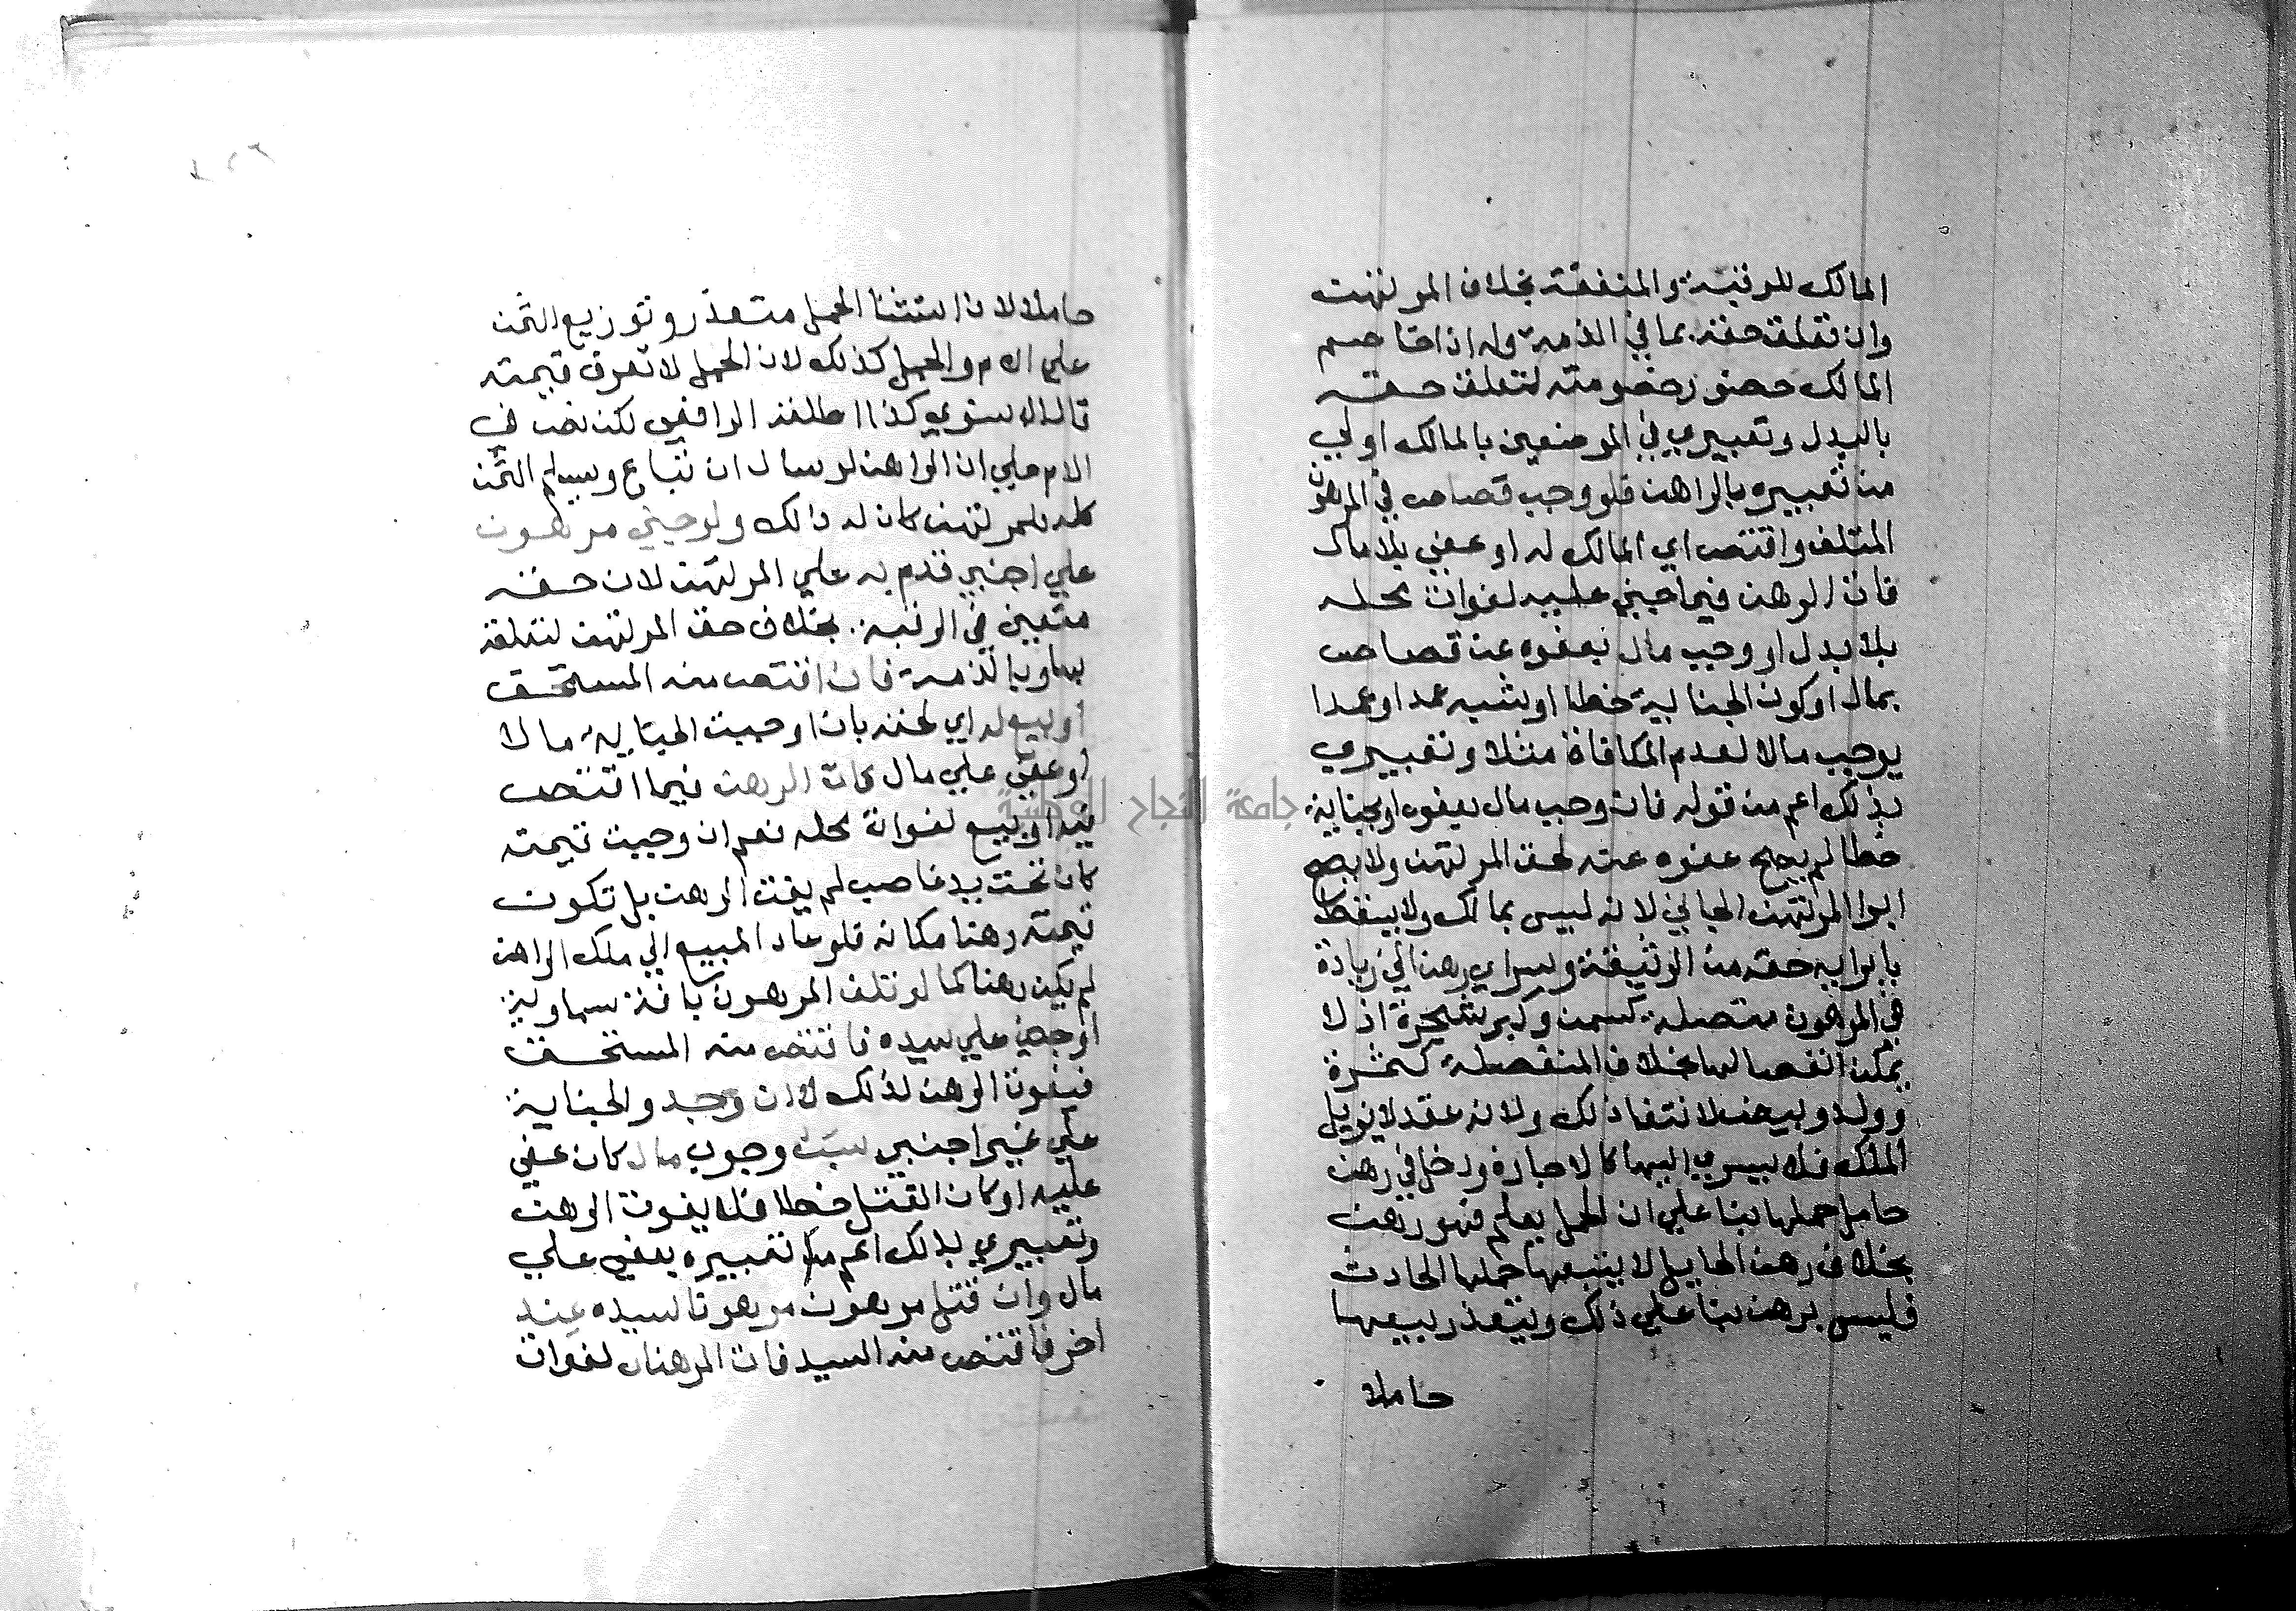 المالك للرقبة والمنفعة بخلاف المرتهن
وان تعلق حقه بما في الذمة وله اذا خاصم
المالك حضور خصومته لتعلق حقه
بالبدل وتعبيري في الموضعين بالمالك اولي
من تعبيره بالراهن فلو وجب قصاص في المرهون
المتلف واقتص اي المالك له او عفي بلا مال
فات الرهن فيما جني عليه لفوات محله
بلا بدل او وجب مال بعفوه عن قصاص
بمال او كون الجناية خطا او شبه عمد او عمدا
يوجب مالا لعدم المكافاة مثلا وتعبيري
بذلك اعم من قوله فان وجب مال بعفوه او بجناية
خطا لم يصح عفوه عنه لحق المرتهن ولا يصح
ابرا المرتهن الجاني لانه ليس بمالك ولا يسقط
بابرايه حقه من الوثيقة وسري رهن الي زيادة
في المرهون متصلة كسمن وكبر شجرة اذ لا
يمكن انفصالها بخلاف المنفصلة كثمرة
وولد وبيض لانتفا ذلك ولانه عقد لا يزيل
الملك فلا يسري اليها كالاجارة ودخل في رهن
حامل حملها بنا علي ان الحمل يعلم فهو رهن
بخلاف رهن الحايل لا يتبعها حملها الحادث
فليس برهن بنا علي ذلك ويتعذر بيعها
حاملا
حاملا لان استثنا الحمل متعذر وتوزيع الثمن
علي الام والحمل كذلك لان الحمل لا تعرف قيمته
قال الاسنوي كذا اطلقه الرافعي لكن نص في
الام علي ان الراهن لو سال ان تباع ويسلم الثمن
كله للمرتهن كان له ذالك ولو جني مرهون
علي اجنبي قدم به علي المرتهن لان حقه
متعين في الرقبة بخلاف حق المرتهن لتعلقه
بها وبالذمة فان اقتص منه المستحق
او بيع له اي لحقه بان اوجبت الجناية مالا
او عفي علي مال فات الرهن فيما اقتص
فيه او بيع لفوات محله نعم ان وجبت قيمته
كان تحت يد غاصب لم يفت الرهن بل تكون
قيمته رهنا مكانه فلو عاد المبيع الي ملك الراهن
لم يكن رهنا كما لو تلف المرهون بافة سماوية
او جني علي سيده فاقتص منه المستحق
فيفوت الرهن لذلك لا ان وجد والجناية
علي غير اجنبي سبب وجوب مال كان عفي
عليه او كان القتل خطا فلا يفوت الرهن
وتعبيري بذلك اعم من تعبيره بعفي علي
مال وان قتل مرهون مرهونا لسيده عند
اخر فاقتص منه السيد فات الرهنان لفوات
جامعة النجاح الوطنية